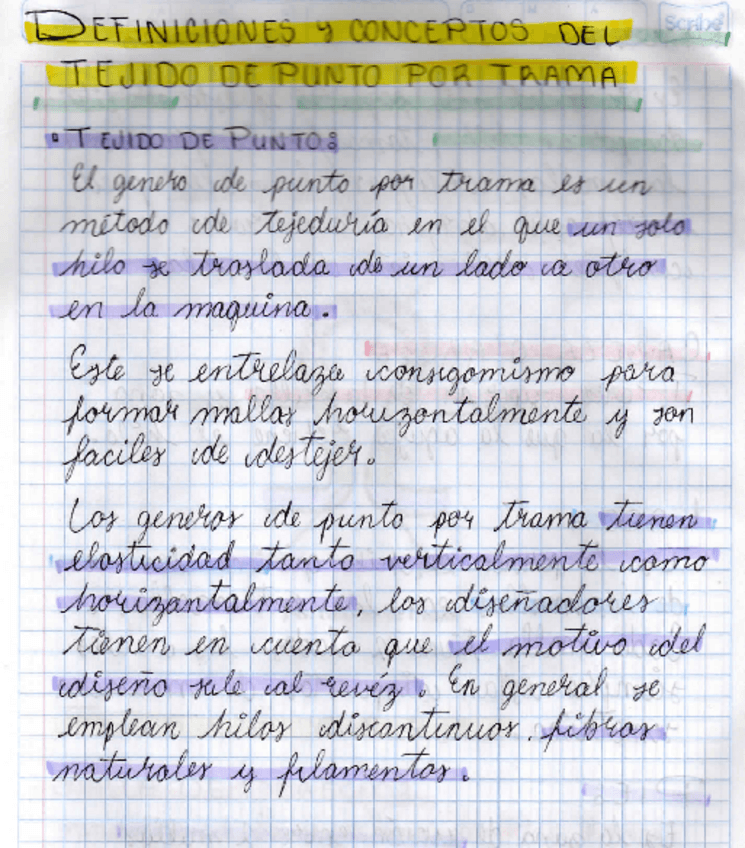 Scribe
DEFINICIONES y CONCEPTOS DEL
TEJIDO DE PUNTO POR TRAMA
• TEJIDO DE PUNTO:
El genero de punto por trama es un
método de tejeduría en el que un solo
hilo se traslada de un lado a otro
en la maquina.
Este se entrelaza consigomismo para
formar mallas horizontalmente y son
faciles de destejer.
Los generos de punto por trama tienen
elasticidad tanto verticalmente como
horizontalmente, los diseñadores
tienen en cuenta que el motivo del
diseño sale al revéz. En general se
emplean hilos discontinuos, fibras
naturales y filamentos.